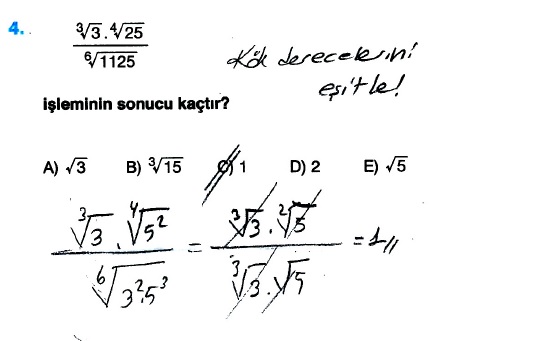 4. ∛3 . ∜25 / ⁶√1125
Kök derecelerini
eşitle!
işleminin sonucu kaçtır?
A) √3 B) ∛15 C) 1 D) 2 E) √5
∛3 . ∜5² / ⁶√3².5³ = ∛3 . ²√5 / ∛3 . √5 = 1